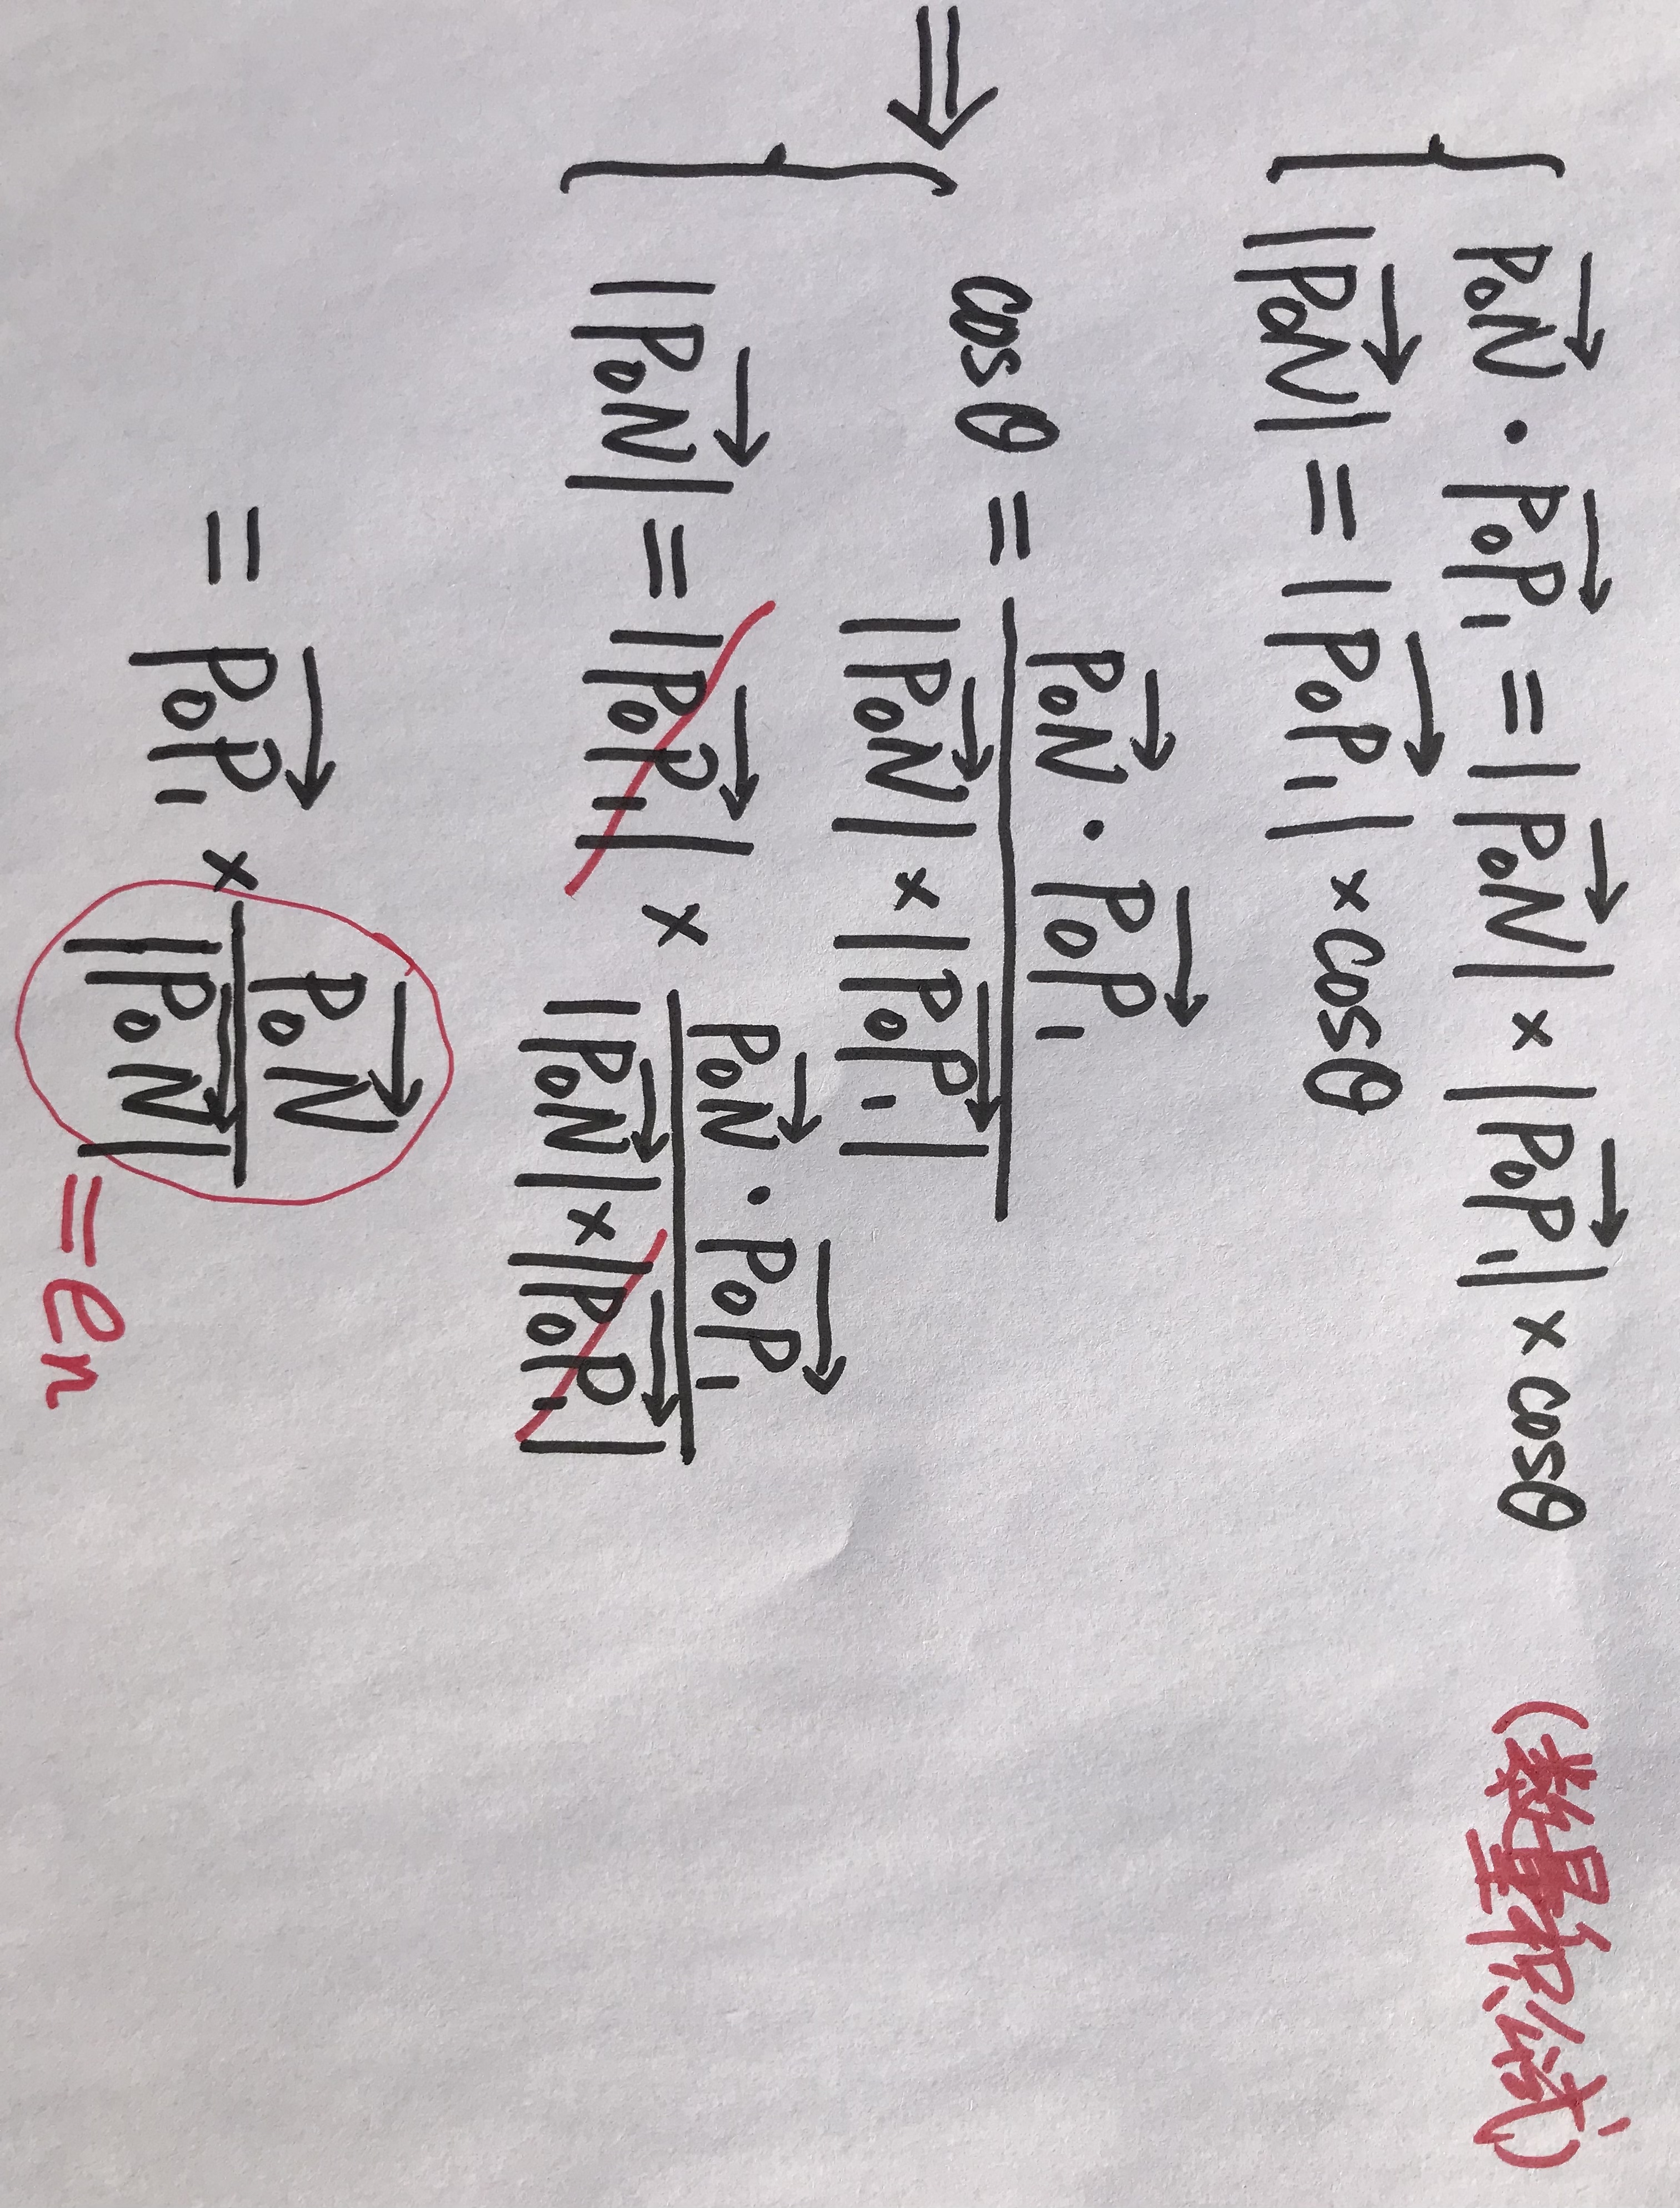 { $\overrightarrow{P_0N} \cdot \overrightarrow{P_0P_1} = |\overrightarrow{P_0N}| \times |\overrightarrow{P_0P_1}| \times \cos\theta$ (数量积公式)
$|\overrightarrow{P_0N}| = |\overrightarrow{P_0P_1}| \times \cos\theta$
⇒ { $\cos\theta = \frac{\overrightarrow{P_0N} \cdot \overrightarrow{P_0P_1}}{|\overrightarrow{P_0N}| \times |\overrightarrow{P_0P_1}|}$
$|\overrightarrow{P_0N}| = |\overrightarrow{P_0P_1}| \times \frac{\overrightarrow{P_0N} \cdot \overrightarrow{P_0P_1}}{|\overrightarrow{P_0N}| \times |\overrightarrow{P_0P_1}|}$
$= \overrightarrow{P_0P_1} \times \frac{\overrightarrow{P_0N}}{|\overrightarrow{P_0N}|}$ = en